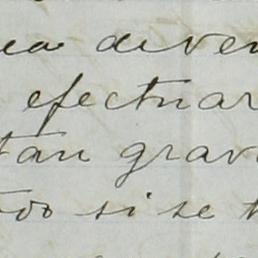 ea diver
efectuar
tan grav
do si se